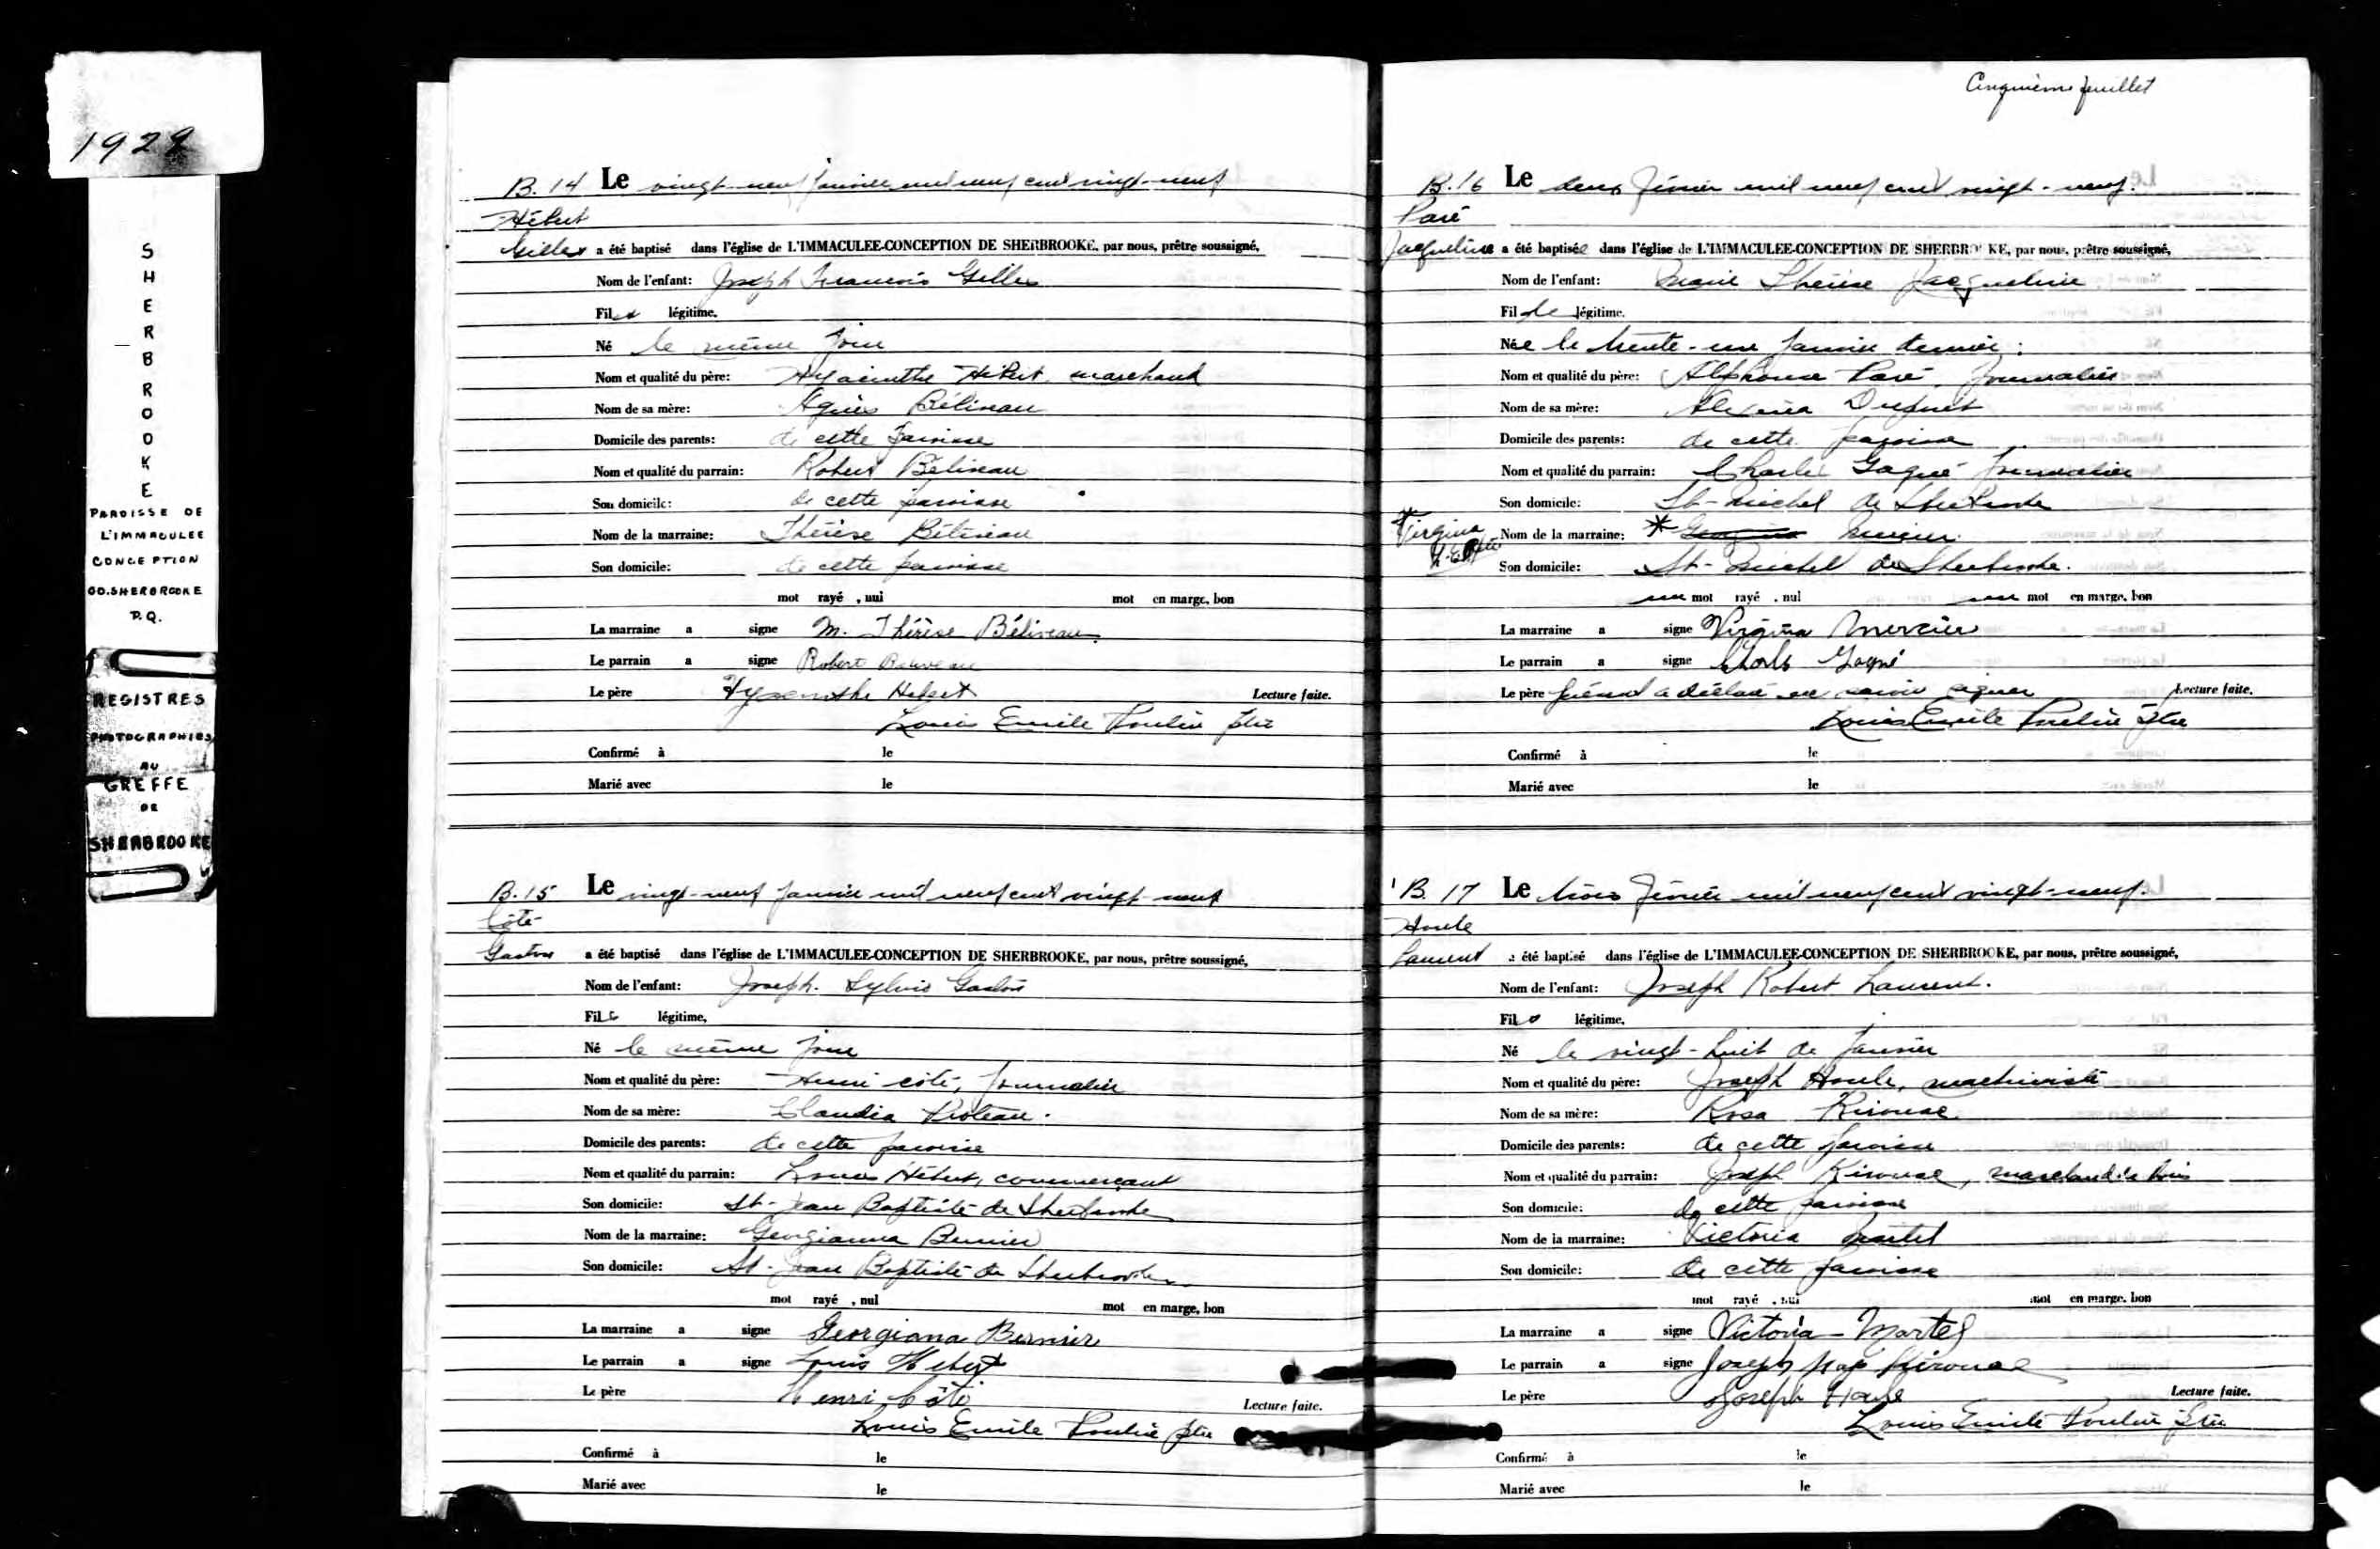 1929
SHERBROOKE
PAROISSE DE
L'IMMACULEE
CONCEPTION
CO.SHERBROOKE
P.Q.
REGISTRES
PHOTOGRAPHIES
AU
GREFFE
DE
SHERBROOKE
B. 14 Le vingt-neuf janvier mil neuf cent vingt-neuf
Hébert
Gilles a été baptisé dans l'église de L'IMMACULEE-CONCEPTION DE SHERBROOKE, par nous, prêtre soussigné,
Nom de l'enfant: Joseph François Gilles
Fils légitime,
Né le même jour
Nom et qualité du père: Hyacinthe Hébert marchand
Nom de sa mère: Agnès Béliveau
Domicile des parents: de cette paroisse
Nom et qualité du parrain: Robert Béliveau
Son domicile: de cette paroisse
Nom de la marraine: Thérèse Béliveau
Son domicile: de cette paroisse
mot rayé , nul mot en marge, bon
La marraine a signe M. Thérèse Béliveau
Le parrain a signe Robert Béliveau
Le père Hyacinthe Hebert Lecture faite.
Louis Emile Poulin ptre
Confirmé à le
Marié avec le
B. 15 Le vingt-neuf janvier mil neuf cent vingt-neuf
Côté
Gaston a été baptisé dans l'église de L'IMMACULEE-CONCEPTION DE SHERBROOKE, par nous, prêtre soussigné,
Nom de l'enfant: Joseph. Sylvio Gaston
Fils légitime,
Né le même jour
Nom et qualité du père: Henri Côté, journalier
Nom de sa mère: Claudia
Domicile des parents: de cette paroisse
Nom et qualité du parrain: Louis Hébert, commerçant
Son domicile: St-Jean Baptiste de Sherbrooke
Nom de la marraine: Georgianna Bernier
Son domicile: St-Jean Baptiste de Sherbrooke
mot rayé , nul mot en marge, bon
La marraine a signe Georgiana Bernier
Le parrain a signe Louis Hebert
Le père Henri Côté Lecture faite.
Louis Emile Poulin ptre
Confirmé à le
Marié avec le
Cinquième feuillet
B. 16 Le deux février mil neuf cent vingt-neuf.
Paré
Jacqueline a été baptisée dans l'église de L'IMMACULEE-CONCEPTION DE SHERBROOKE, par nous, prêtre soussigné,
Nom de l'enfant: Marie Thérèse Jacqueline
Fille légitime.
Née le trente-un janvier dernier:
Nom et qualité du père: Alphonse Paré, journalier
Nom de sa mère: Alexina
Domicile des parents: de cette paroisse
Nom et qualité du parrain: Charles Gagné journalier
Son domicile: St-Michel de Sherbrooke
Virgina Nom de la marraine: * Mercier
Son domicile: St-Michel de Sherbrooke.
un mot rayé , nul un mot en marge, bon
La marraine a signe Virgina Mercier
Le parrain a signe Charles Gagné
Le père présent a déclaré ne savoir signer Lecture faite.
Louis Emile Poulin Ptre
Confirmé à le
Marié avec le
B. 17 Le trois février mil neuf cent vingt-neuf.
Houle
Laurent a été baptisé dans l'église de L'IMMACULEE-CONCEPTION DE SHERBROOKE, par nous, prêtre soussigné,
Nom de l'enfant: Joseph Robert Laurent.
Fils légitime,
Né le vingt-huit de janvier
Nom et qualité du père: Joseph Houle, machiniste
Nom de sa mère: Rosa Kirouac
Domicile des parents: de cette paroisse
Nom et qualité du parrain: Joseph Kirouac, marchand de bois
Son domicile: de cette paroisse
Nom de la marraine: Victoria Martel
Son domicile: de cette paroisse
mot rayé , nul mot en marge, bon
La marraine a signe Victoria-Martel
Le parrain a signe Joseph Nap Kirouac
Le père Joseph Houle Lecture faite.
Louis Emile Poulin Ptre
Confirmé à le
Marié avec le